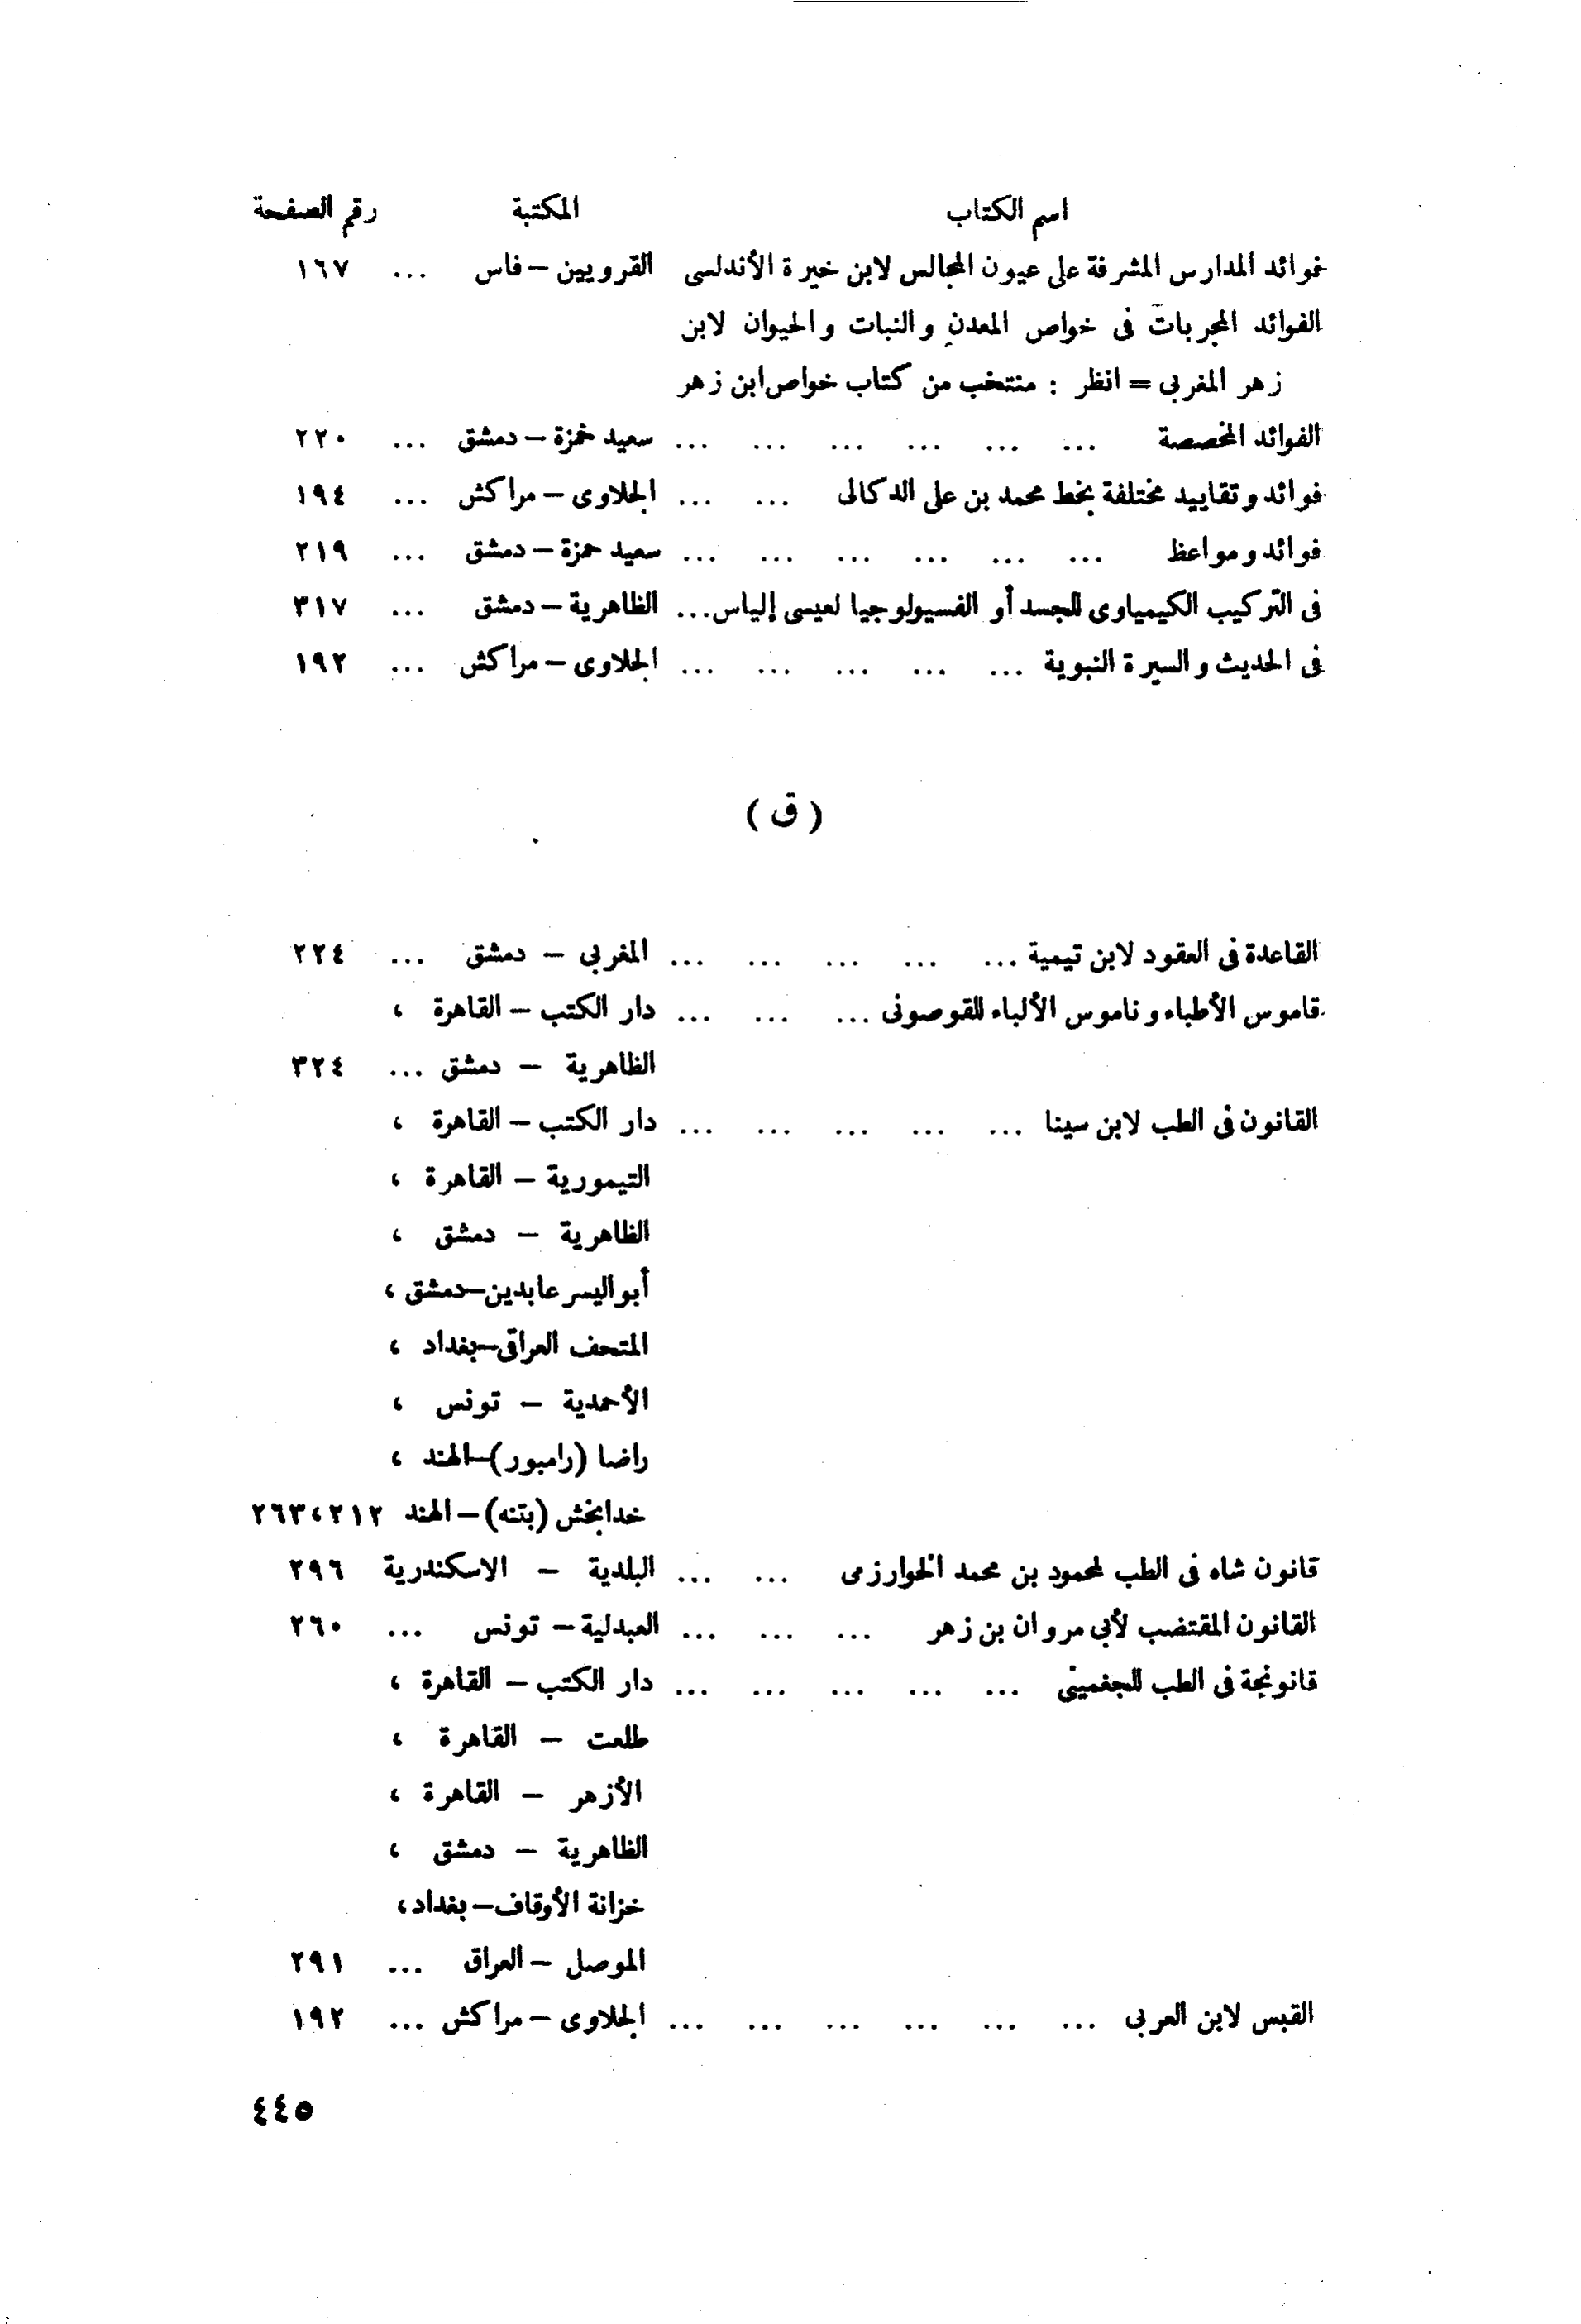 اسم الكتاب المكتبة رقم الصفحة
فوائد المدارس المشرفة على عيون المجالس لابن خيرة الأندلسى القرويين – فاس ... ١٦٧
الفوائد المجربات فى خواص المعدن والنبات والحيوان لابن
زهر المغربى = انظر : منتخب من كتاب خواص ابن زهر
الفوائد المخصصة ... ... ... ... ... ... سعيد حمزة – دمشق ... ٢٢٠
فوائد وتقاييد مختلفة بخط محمد بن على الدكالى ... ... الجلاوى – مراكش ... ١٩٤
فوائد ومواعظ ... ... ... ... ... ... سعيد حمزة – دمشق ... ٢١٩
فى التركيب الكيمياوى للجسد أو الفسيولوجيا لعيسى إلياس ... الظاهرية – دمشق ... ٣١٧
فى الحديث والسيرة النبوية ... ... ... ... ... الجلاوى – مراكش ... ١٩٢
( ق )
القاعدة فى العقود لابن تيمية ... ... ... ... ... المغربى – دمشق ... ٢٢٤
قاموس الأطباء وناموس الألباء للقوصونى ... ... ... دار الكتب – القاهرة ،
الظاهرية – دمشق ... ٣٢٤
القانون فى الطب لابن سينا ... ... ... ... ... دار الكتب – القاهرة ،
التيمورية – القاهرة ،
الظاهرية – دمشق ،
أبو اليسر عابدين – دمشق ،
المتحف العراقى – بغداد ،
الأحمدية – تونس ،
راضا (رامبور) – الهند ،
خدابخش (بتنه) – الهند ٢١٢ ، ٢٦٣
قانون شاه فى الطب لمحمود بن محمد الخوارزمى ... ... البلدية – الاسكندرية ٢٩٦
القانون المقتضب لأبى مروان بن زهر ... ... ... العبدلية – تونس ... ٢٦٠
قانونجة فى الطب للجغمينى ... ... ... ... ... دار الكتب – القاهرة ،
طلعت – القاهرة ،
الأزهر – القاهرة ،
الظاهرية – دمشق ،
خزانة الأوقاف – بغداد ،
الموصل – العراق ... ٢٩١
القبس لابن العربى ... ... ... ... ... ... الجلاوى – مراكش ... ١٩٢
٤٤٥